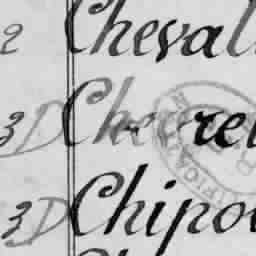 2 Cheval
3D Chevrel
3D Chipo